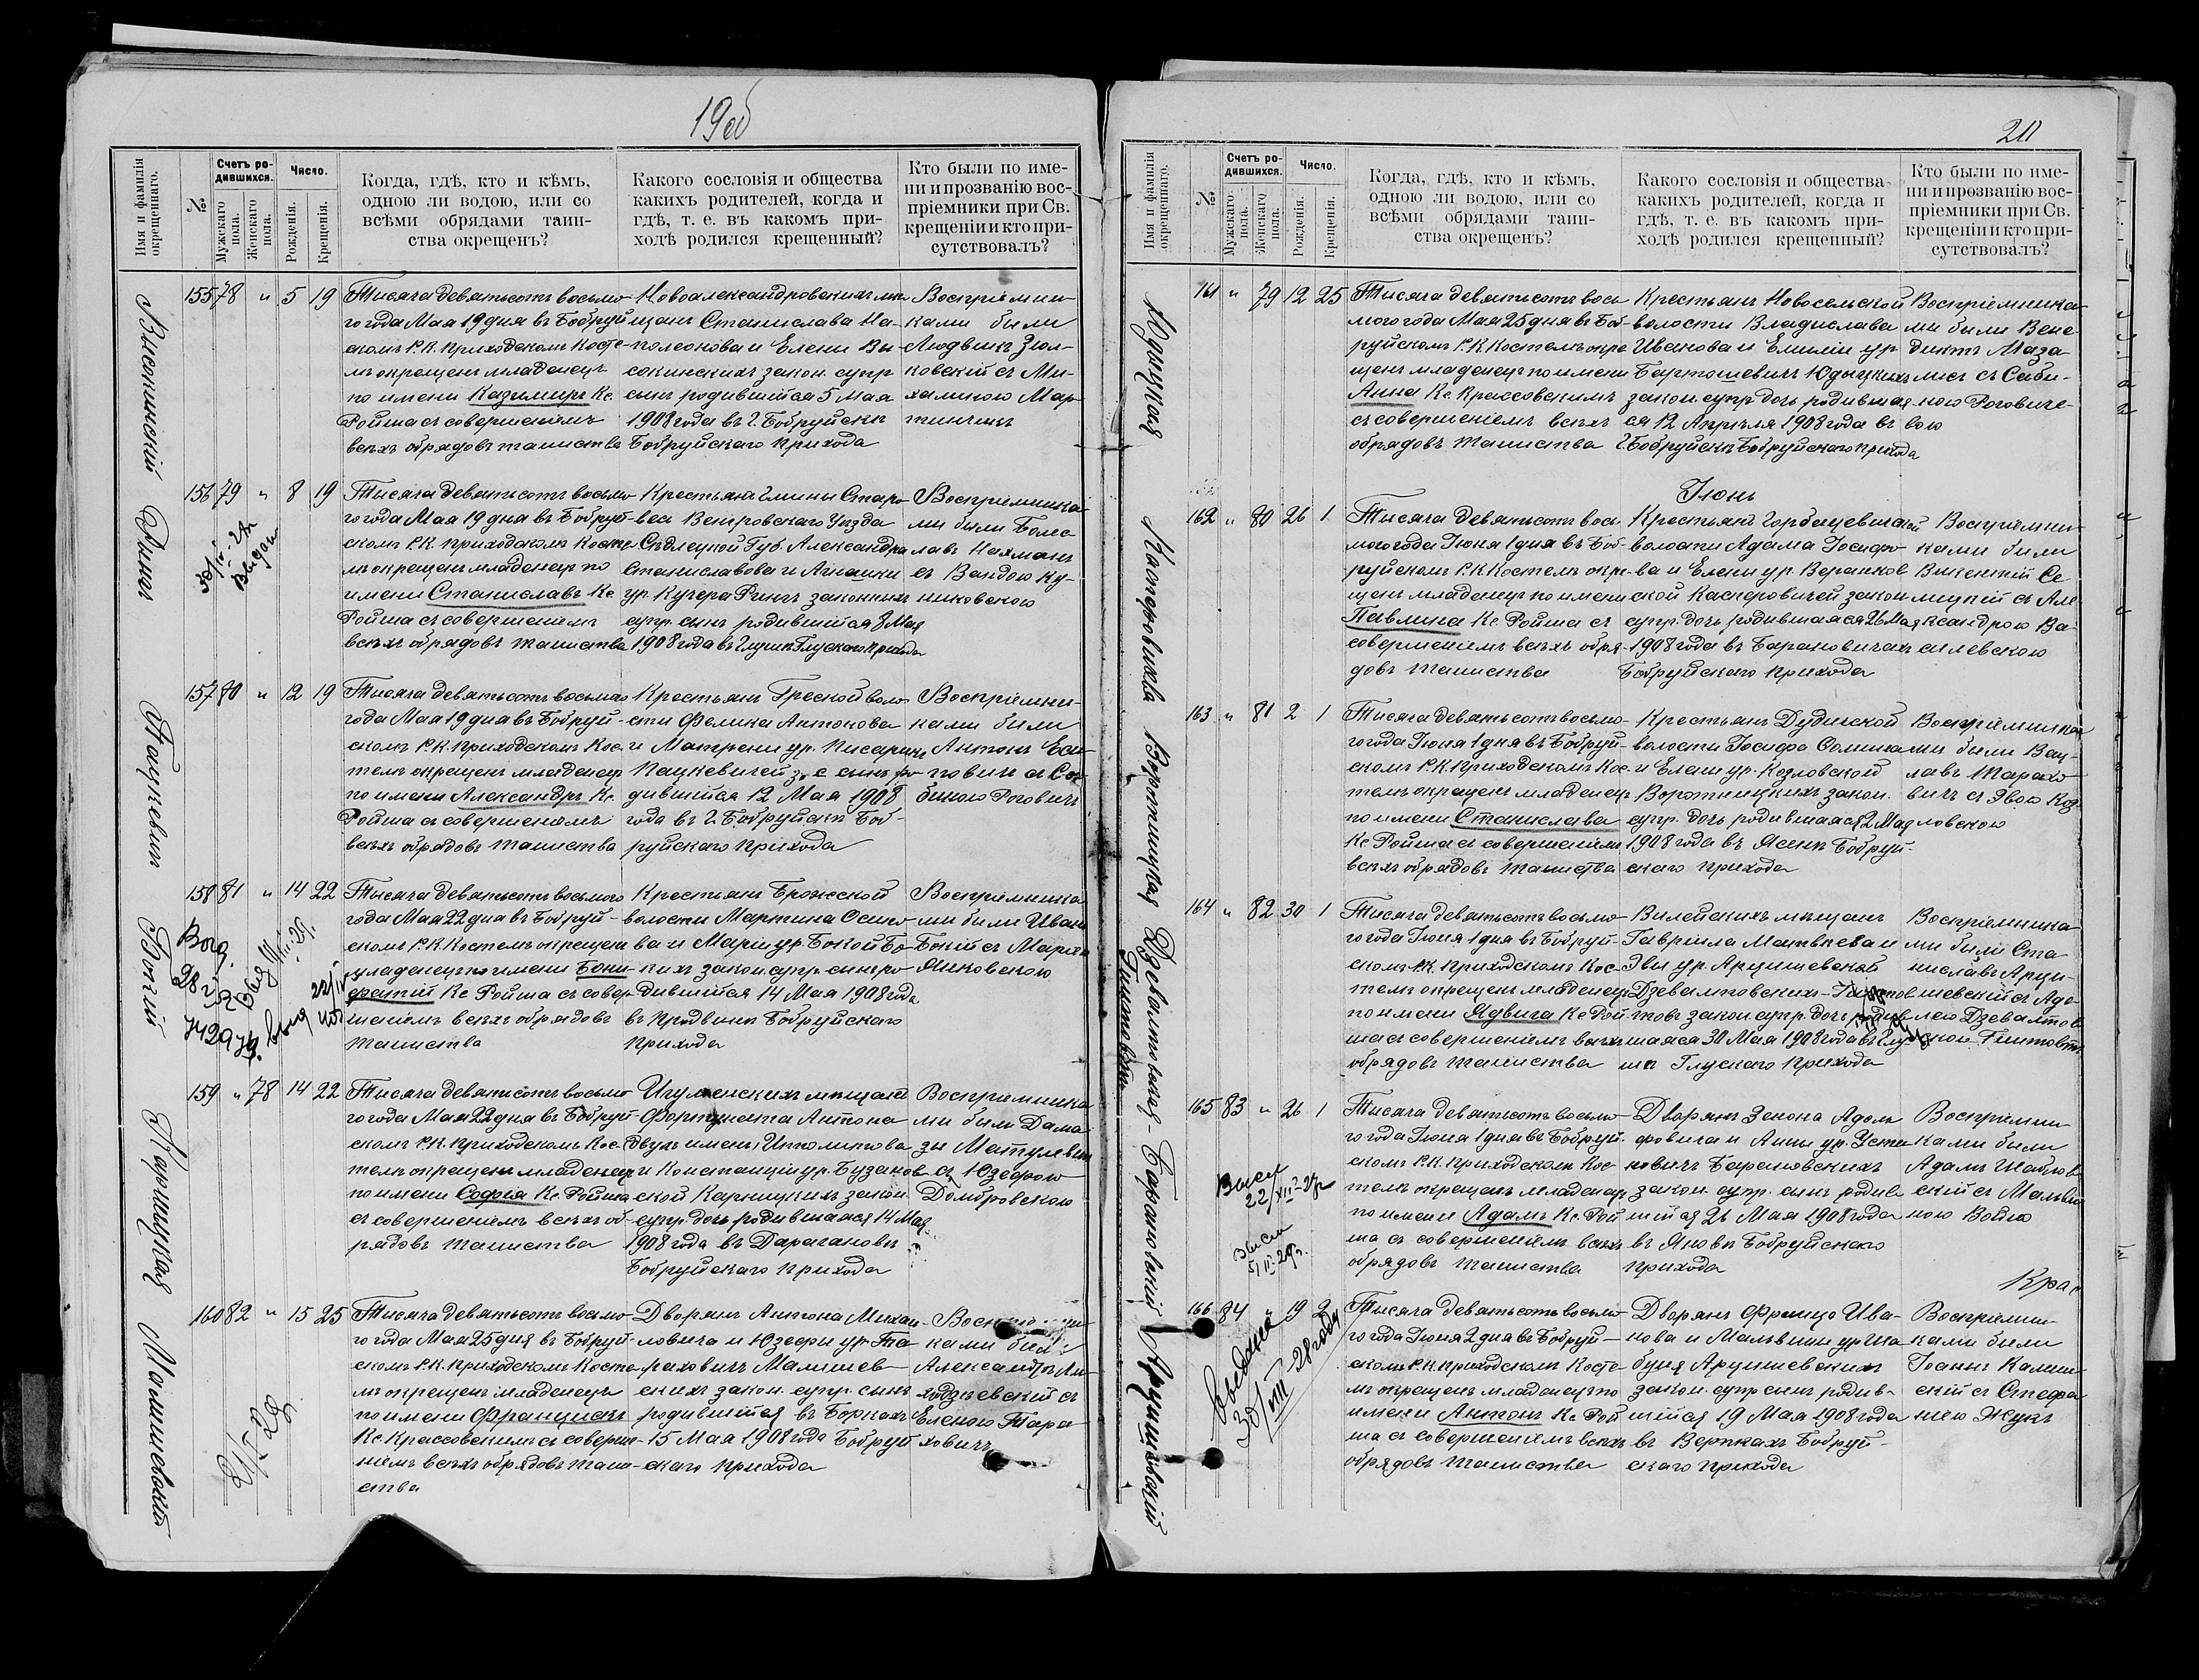 19об
Имя и фамилія окрещеннаго.
№
Счетъ ро-
дившихся.
Мужскаго пола.
Женскаго пола.
Число.
Рожденія.
Крещенія.
Когда, гдѣ, кто и кѣмъ,
одною ли водою, или со
всѣми обрядами таин-
ства окрещенъ?
Какого сословія и общества
какихъ родителей, когда и
гдѣ, т. е. въ какомъ при-
ходѣ родился крещенный?
Кто были по име-
ни и прозванію вос-
пріемники при Св.
крещеніи и кто при-
сутствовалъ?
Высокинскій
155 78 " 5 19
Тысяча девятьсотъ восьмо-
го года Мая 19 дня въ Бобруй
скомъ Р. К. приходскомъ Косте-
лѣ окрещенъ младенецъ
по имени Казимиръ Кс.
Ройша съ совершеніемъ
всѣхъ обрядовъ таинства
Новоалександровскихъ мѣ
щанъ Станислава На-
полеонова и Елены Вы-
сокинскихъ закон. супр
сынъ родившійся 5 Мая
1908 года въ г. Бобруйскѣ
Бобруйскаго прихода
Воспріемни-
ками были
Людвикъ Зюл-
ковскій съ Ми-
халиною Мар-
тинчикъ
156 79 " 8 19
Выдан
Тысяча девятьсотъ восьмо
го года Мая 19 дня въ Бобруй-
скомъ Р. К. приходскомъ Косте
лѣ окрещенъ младенецъ по
имени Станиславъ Кс.
Ройша съ совершеніемъ
всѣхъ обрядовъ таинства
Крестьяна гмины Старо
весь Венгровскаго Уѣзда
Сѣдлецкой Губ. Александра
Станиславова и Агнешки
ур. Кучера Рингъ законныхъ
супр. сынъ родившійся 8 Мая
1908 года въ Глускѣ Глускаго прихода
Воспріемника-
ми были Болес
лавъ Нахманъ
съ Вандою Ку-
никовскою
Пацкевичъ
157 80 " 12 19
Тысяча девятьсотъ восьмаго
года Мая 19 дня въ Бобруй-
скомъ Р. К. приходскомъ Кос-
телѣ окрещенъ младенецъ
по имени Александръ Кс.
Ройша съ совершеніемъ
всѣхъ обрядовъ таинства
Крестьянъ Греской воло-
сти Феликса Антонова
и Матрены ур. Писарикъ
Пацкевичей з. с. сынъ ро-
дившійся 12 Мая 1908
года въ г. Бобруйскѣ Боб-
руйскаго прихода
Воспріемни-
ками были
Антонъ Еси-
повичъ съ Са-
биною Роговичъ
Бокій
158 81 " 14 22
Тысяча девятьсотъ восьмого
года Мая 22 дня въ Бобруй-
скомъ Р. К. Костелѣ окрещенъ
младенецъ по имени Бони-
фатій Кс. Ройша съ совер-
шеніемъ всѣхъ обрядовъ
таинства
Крестьянъ Брожской
волости Мартина Осипо-
ва и Маріи ур. Бокой Бо-
кихъ закон. супр. сынъ ро-
дившійся 14 Мая 1908 года
Бобруйскаго
прихода
Воспріемника
ми были Иванъ
Бокій съ Маріею
Янковскою
Карницкая
159 " 78 14 22
Тысяча девятьсотъ восьмо-
го года Мая 22 дня въ Бобруй
скомъ Р. К. приходскомъ Кос-
телѣ окрещенъ младенецъ
по имени Софія Кс. Ройша
съ совершеніемъ всѣхъ об-
рядовъ таинства
Игуменскихъ мѣщанъ
Фортуната Антона
двухъ именъ Ипполитова
и Констанціи ур. Бузанов-
ской Карницкихъ закон.
супр. дочь родившаяся 14 Мая
1908 года въ Дарагановѣ
Бобруйскаго прихода
Воспріемника
ми были Дама
зы Матулевичъ
съ Юзефою
Домбровскою
Малишевскій
160 82 " 15 25
Тысяча девятьсотъ восьмо-
го года Мая 25 дня въ Бобруй-
скомъ Р. К. приходскомъ Косте-
лѣ окрещенъ младенецъ
по имени Францискъ
Кс. Крассовскимъ съ соверше-
ніемъ всѣхъ обрядовъ таин-
ства
Дворянъ Антона Михаи-
ловича и Юзефы ур. Та-
раховичъ Малишев-
скихъ закон. супр. сынъ
родившійся въ Боркахъ
15 Мая 1908 года Бобруй
скаго прихода
ками были
съ
Еленою Тара
ховичъ
20
Имя и фамилія окрещеннаго.
№
Счетъ ро-
дившихся.
Мужскаго пола.
Женскаго пола.
Число.
Рожденія.
Крещенія.
Когда, гдѣ, кто и кѣмъ,
одною ли водою, или со
всѣми обрядами таин-
ства окрещенъ?
Какого сословія и общества
какихъ родителей, когда и
гдѣ, т. е. въ какомъ при-
ходѣ родился крещенный?
Кто были по име-
ни и прозванію вос-
пріемники при Св.
крещеніи и кто при-
сутствовалъ?
Юдыцкая
161 " 79 12 25
Тысяча девятьсотъ вось
мого года Мая 25 дня въ Боб-
руйскомъ Р. К. Костелѣ окре
щенъ младенецъ по имени
Анна Кс. Крассовскимъ
съ совершеніемъ всѣхъ
обрядовъ таинства
Крестьянъ Новосельской
волости Владислава
Иванова и Емиліи ур
Бартошевичъ Юдыцкихъ
закон. супр. дочь родившая-
ся 12 Апрѣля 1908 года въ
г. Бобруйскѣ Бобруйскаго прихода
Воспріемника-
ми были Вене-
диктъ Маза-
лисъ съ Саби-
ною Роговиче-
вою
Іюнь
Касперовичева
162 " 80 26 1
Тысяча девятьсотъ вось
мого года Іюня 1 дня въ Боб-
руйскомъ Р. К. Костелѣ окре-
щенъ младенецъ по имени
Павлина Кс. Ройша съ
совершеніемъ всѣхъ обря-
довъ таинства
Крестьянъ Горбацевичской
волости Адама Іосифо-
ва и Елены ур. Веранков-
ской Касперовичей закон
супр. дочь родившаяся 26 Мая
1908 года въ Барановичахъ
Бобруйскаго прихода
Воспріемни-
ками были
Викентій Се
мецкій съ Але-
ксандрою Ва-
силевскою
Воротницкая
163 " 81 2 1
Тысяча девятьсотъ восьмо-
го года Іюня 1 дня въ Бобруй-
скомъ Р. К. приходскомъ Кос-
телѣ окрещенъ младенецъ
по имени Станислава
Кс. Ройша съ совершеніемъ
всѣхъ обрядовъ таинства
Крестьянъ Дудичской
волости Іосифа
и Елены ур. Козловской
Воротницкихъ закон.
супр. дочь родившаяся 2 Мая
1908 года въ Ясенѣ Бобруй-
скаго прихода
Воспріемника
ми были Вац-
лавъ Тарахо-
вичъ съ Эвою Коз-
ловскою
Дзевалтовская-
Гинтовтъ
164 " 82 30 1
Тысяча девятьсотъ восьмо-
го года Іюня 1 дня въ Бобруй-
скомъ Р. К. приходскомъ Кос-
телѣ окрещенъ младенецъ
по имени Ядвига Кс. Рой-
ша съ совершеніемъ всѣхъ
обрядовъ таинства
Вилейскихъ мѣщанъ
Гавріила Матвѣева и
Эвы ур. Арцишевской
Дзевалтовскихъ-Гинтов
товъ закон. супр. дочь родив
шаяся 30 Мая 1908 года въ
Глускаго прихода
Воспріемника
ми были Ста
ниславъ Арци-
шевскій съ Аде-
лею Дзевалтов
скою-Гинтовтъ
Барановскій
165 83 " 26 1
Тысяча девятьсотъ восьмо-
го года Іюня 1 дня въ Бобруй-
скомъ Р. К. приходскомъ Кос-
телѣ окрещенъ младенецъ
по имени Адамъ Кс. Рой
ша съ совершеніемъ всѣхъ
обрядовъ таинства
Дворянъ Зенона Адоль
фовича и Анны ур. Усти
новичъ Барановскихъ
закон. супр. сынъ родив
шійся 26 Мая 1908 года
въ Яновѣ Бобруйскаго
прихода
Воспріемни-
ками были
Адамъ Шаблов
скій съ Мальви
ною Войно
Арцишевскій
166 84 " 19 2
Выдана
30/VIII 28 года
Тысяча девятьсотъ восьмо-
го года Іюня 2 дня въ Бобруй-
скомъ Р. К. приходскомъ Косте
лѣ окрещенъ младенецъ по
имени Антонъ Кс. Рой
ша съ совершеніемъ всѣхъ
обрядовъ таинства
Дворянъ Франца Ива-
нова и Мальвины ур Ша
буня Арцишевскихъ
закон. супр. сынъ родив-
шійся 19 Мая 1908 года
въ Верткахъ Бобруй-
скаго прихода
Воспріемни-
ками были
Іоаннъ Калин-
скій съ Стефа-
ніею Жукъ